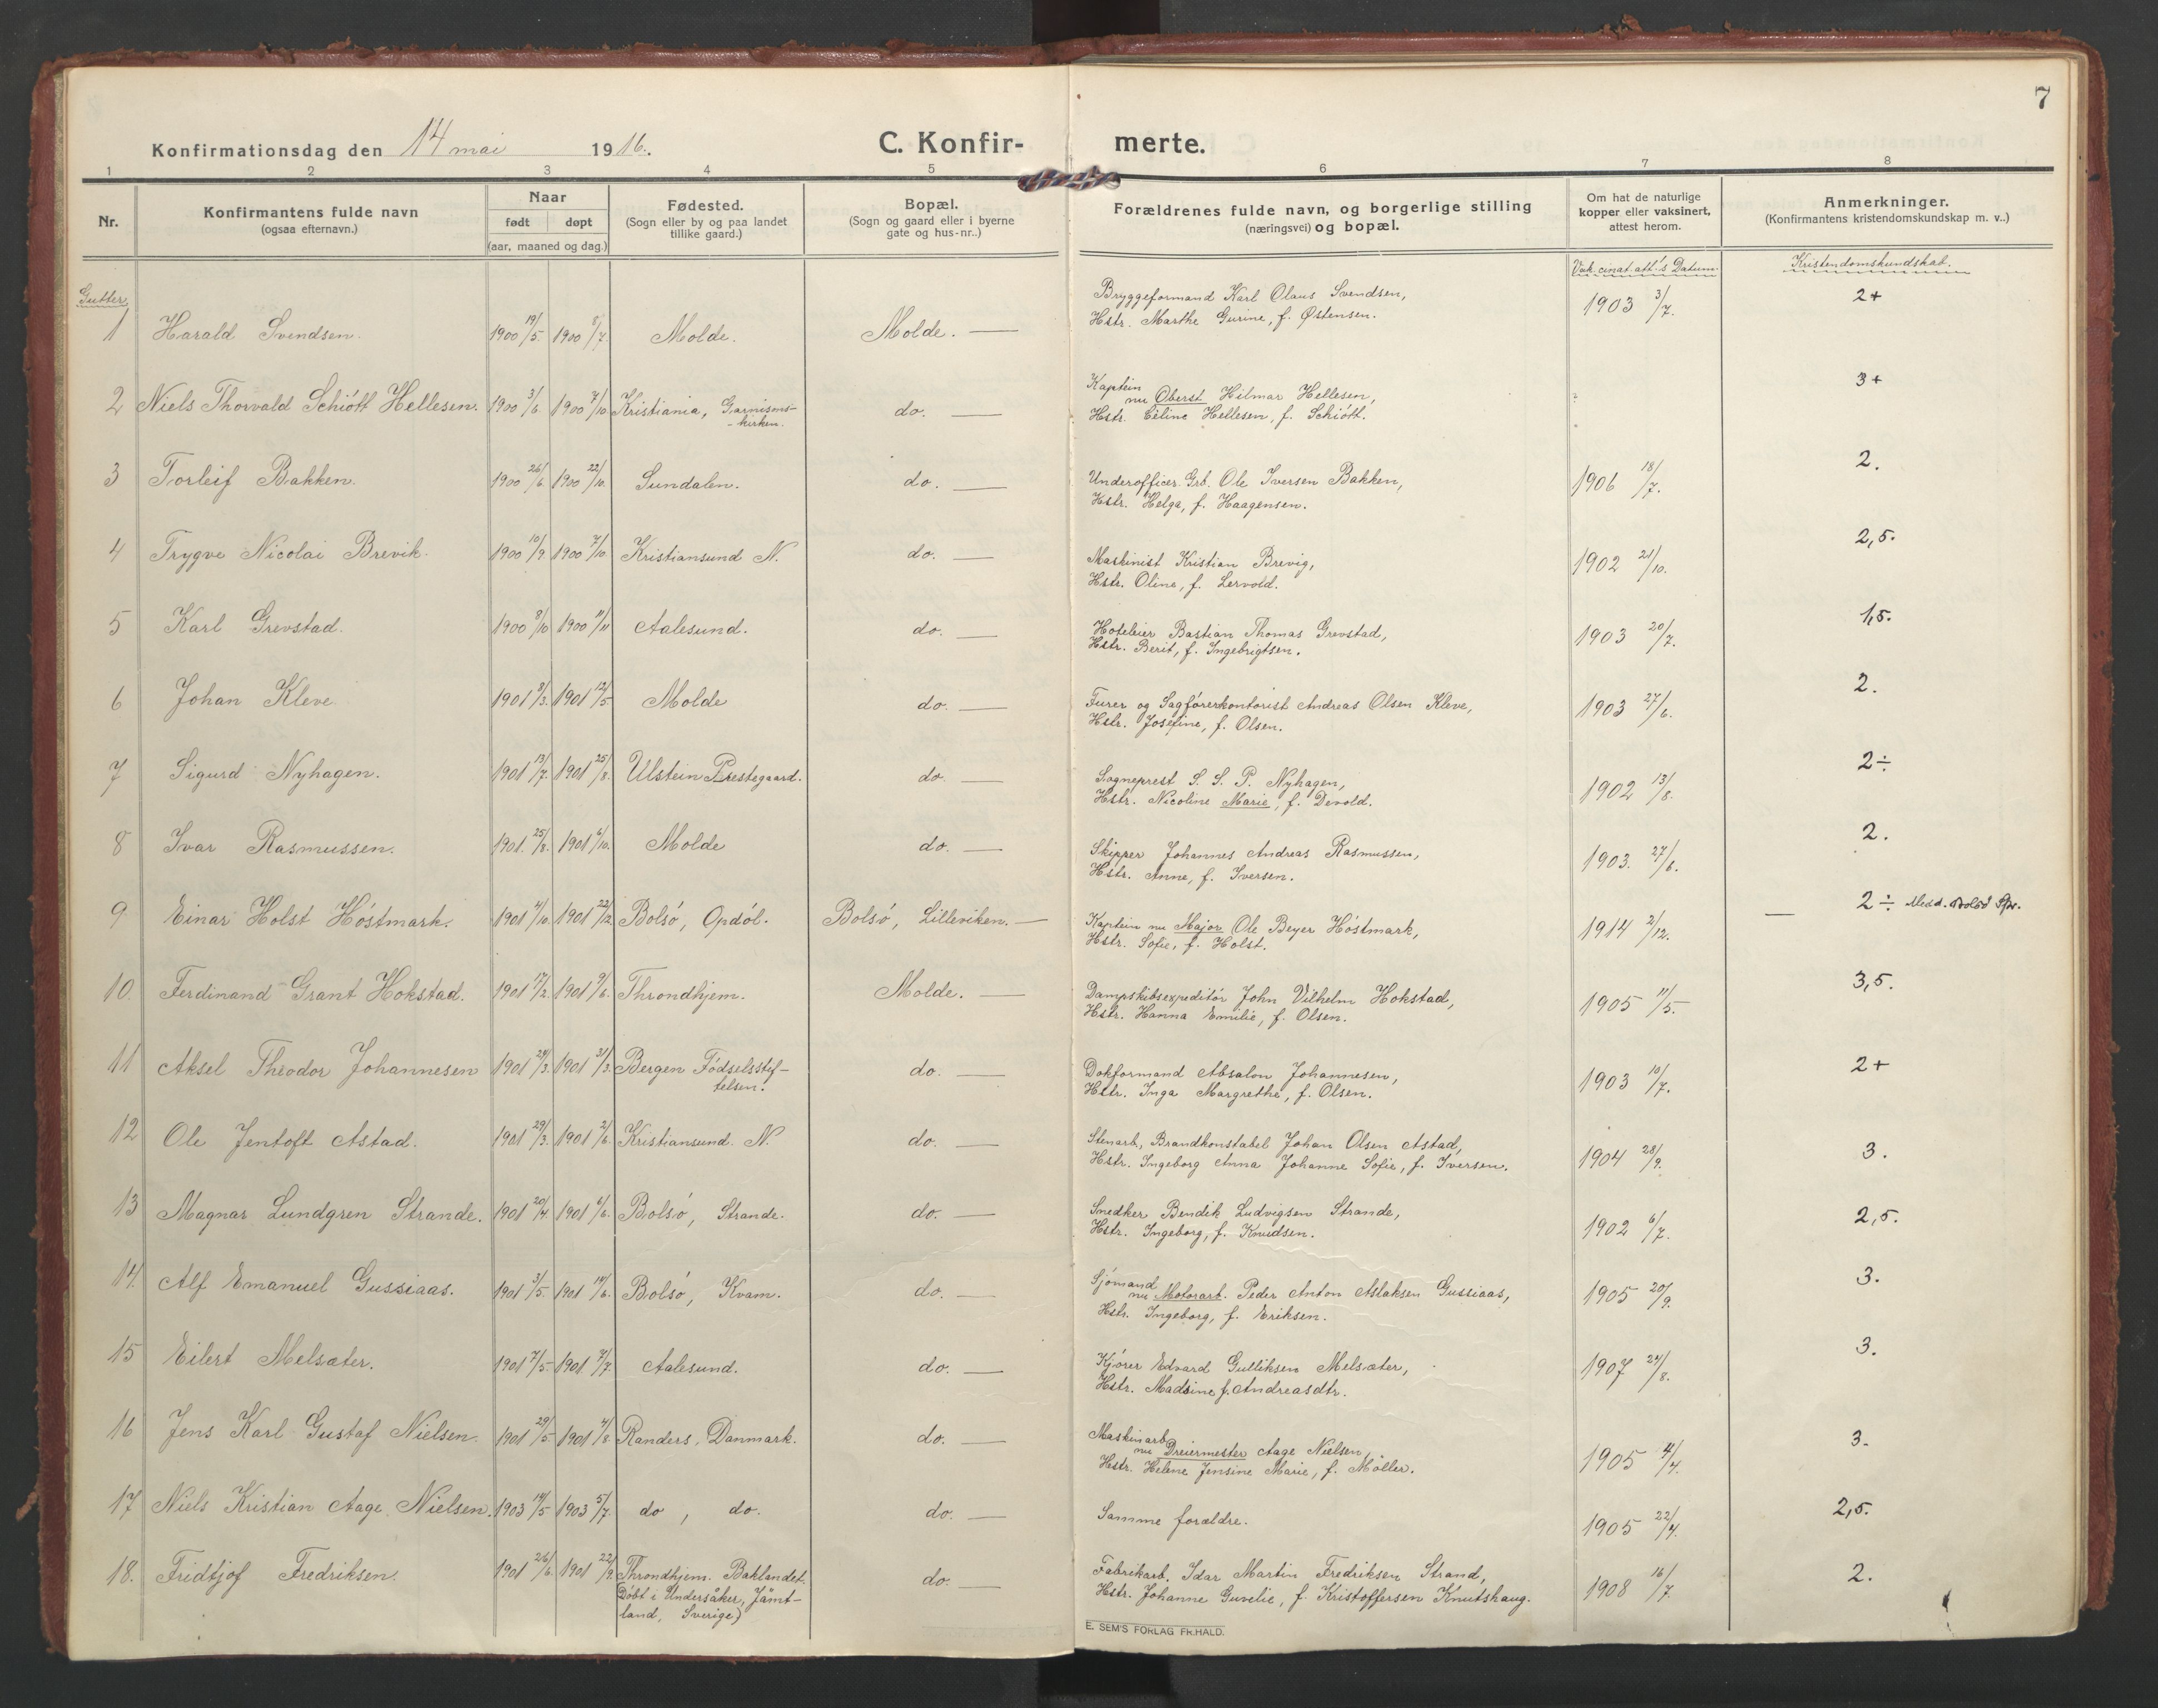 7
Konfirmationsdag den 14 mai 1916.
C. Konfir- merte.
1 2 3 4 5 6 7 8
Nr.
Konfirmantens fulde navn
(ogsaa efternavn.)
Naar
født døpt
(aar, maaned og dag.)
Fødested.
(Sogn eller by og paa landet
tillike gaard.)
Bopæl.
(Sogn og gaard eller i byerne
gate og hus-nr..)
Forældrenes fulde navn, og borgerlige stilling
(næringsvei) og bopæl.
Om hat de naturlige
kopper eller vaksinert,
attest herom.
Anmerkninger.
(Konfirmantens kristendomskundskap m. v..)
Vak.cinat.att.'s Datum.
Kristendomskundskab.
Gutter
1 Harald Svendsen. 1900 19/5. 1900 8/7. Molde. Molde. —
Bryggeformand Karl Olaus Svendsen,
Hstr. Marthe Gurine, f. Østensen.
1903 3/7. 2+
2 Niels Thorvald Schiött Hellesen. 1900 3/6. 1900 7/10 Kristiania, Garnisons-
-kirken.
do. —
Kaptein
nu Oberst Hilmar Hellesen,
Hstr. Céline Hellesen, f. Schiött.
3+
3 Torleif Bakken. 1900 26/6 1900 22/10. Sundalen. do. —
Underofficer. Grb. Ole Iversen Bakken,
Hstr. Helga, f. Haagensen.
1906 18/7. 2.
4 Trygve Nicolai Brevik. 1900 10/9. 1900 7/10. Kristiansund N. do. —
Maskinist Kristian Brevig,
Hstr. Oline, f. Lervold.
1902 21/10. 2,5.
5 Karl Grevstad. 1900 8/10 1900 11/11 Aalesund. do. —
Hoteleier Bastian Thomas Grevstad,
Hstr. Berit, f. Ingebrigtsen.
1903 20/7. 1,5.
6 Johan Kleve 1901 8/3. 1901 12/5. Molde do. —
Furer og Sagförerkontorist Andreas Olsen Kleve,
Hstr. Josefine, f. Olsen.
1903 27/6. 2.
7 Sigurd Nyhagen. 1901 13/7. 1901 25/8. Ulstein Prestegaard. do. —
Sogneprest S. S. P. Nyhagen,
Hstr. Nicoline Marie, f. Devold.
1902 13/8. 2÷
8 Ivar Rasmussen. 1901. 25/8. 1901 6/10. Molde do. —
Skipper Johannes Andreas Rasmussen,
Hstr. Anne, f. Iversen.
1903. 27/6. 2.
9 Einar Holst Höstmark. 1901 4/10. 1901 22/12 Bolsö, Opdöl. Bolsö, Lilleviken. —
Kaptein nu Major Ole Beyer Höstmark,
Hstr. Sofie, f. Holst.
1914 2/12. — 2÷ Medd. Bolsö Spr.
10. Ferdinand Grant Hokstad. 1901 17/2. 1901 9/6. Throndhjem. Molde. —
Dampskibsexpeditör John Vilhelm Hokstad,
Hstr. Hanna Emilie, f. Olsen.
1905 11/5. 3,5.
11 Aksel Theodor Johannesen 1901 24/3. 1901 31/3. Bergen Födselsstif-
telsen.
do. —
Dokformand Absalon Johannesen,
Hstr. Inga Margrethe, f. Olsen.
1903 10/7. 2+
12 Ole Jentoft Astad. 1901 29/3. 1901 2/6. Kristiansund. N. do. —
Stenarb., Brandkonstabel Johan Olsen Astad,
Hstr. Ingeborg Anna Johanne Sofie, f. Iversen.
1904 28/9. 3.
13 Magnar Lundgren Strande. 1901 20/4. 1901 6/6. Bolsö, Strande. do. —
Snedker Bendik Ludvigsen Strande,
Hstr. Ingeborg, f. Knudsen.
1902 6/7. 2,5.
14. Alf Emanuel Gussiaas. 1901 3/5. 1901 14/6. Bolsö, Kvam. do. —
Sjömand
nu Motorarb. Peder Anton Aslaksen Gussiaas,
Hstr. Ingeborg, f. Eriksen.
1905 20/9. 3.
15 Eilert Melsæter. 1901 7/5. 1901. 7/7. Aalesund. do. —
Kjörer Edvard Gulliksen Melsæter,
Hstr. Madsine f. Andreasdtr.
1907 24/8. 3.
16 Jens Karl Gustaf Nielsen. 1901 29/5. 1901 4/8. Randers, Danmark. do. —
Maskinarb.
nu Dreiermester Aage Nielsen,
Hstr. Helene Jensine Marie, f. Möller.
1905 4/4. 3.
17 Niels Kristian Aage Nielsen. 1903 14/5 1903 5/7. do , do. do. —
Samme forældre.
1905 22/4. 2,5.
18. Fridtjof Fredriksen. 1901 26/6. 1901 22/9. Throndhjem. Baklandet.
Döbt i Undersåker, Jämt-
land, Sverige)
do. —
Fabrikarb. Idar Martin Fredriksen Strand,
Hstr. Johanne Guvelie, f. Kristoffersen Knutshaug.
1908 16/7. 2.
E. SEM'S FORLAG FR.HALD.